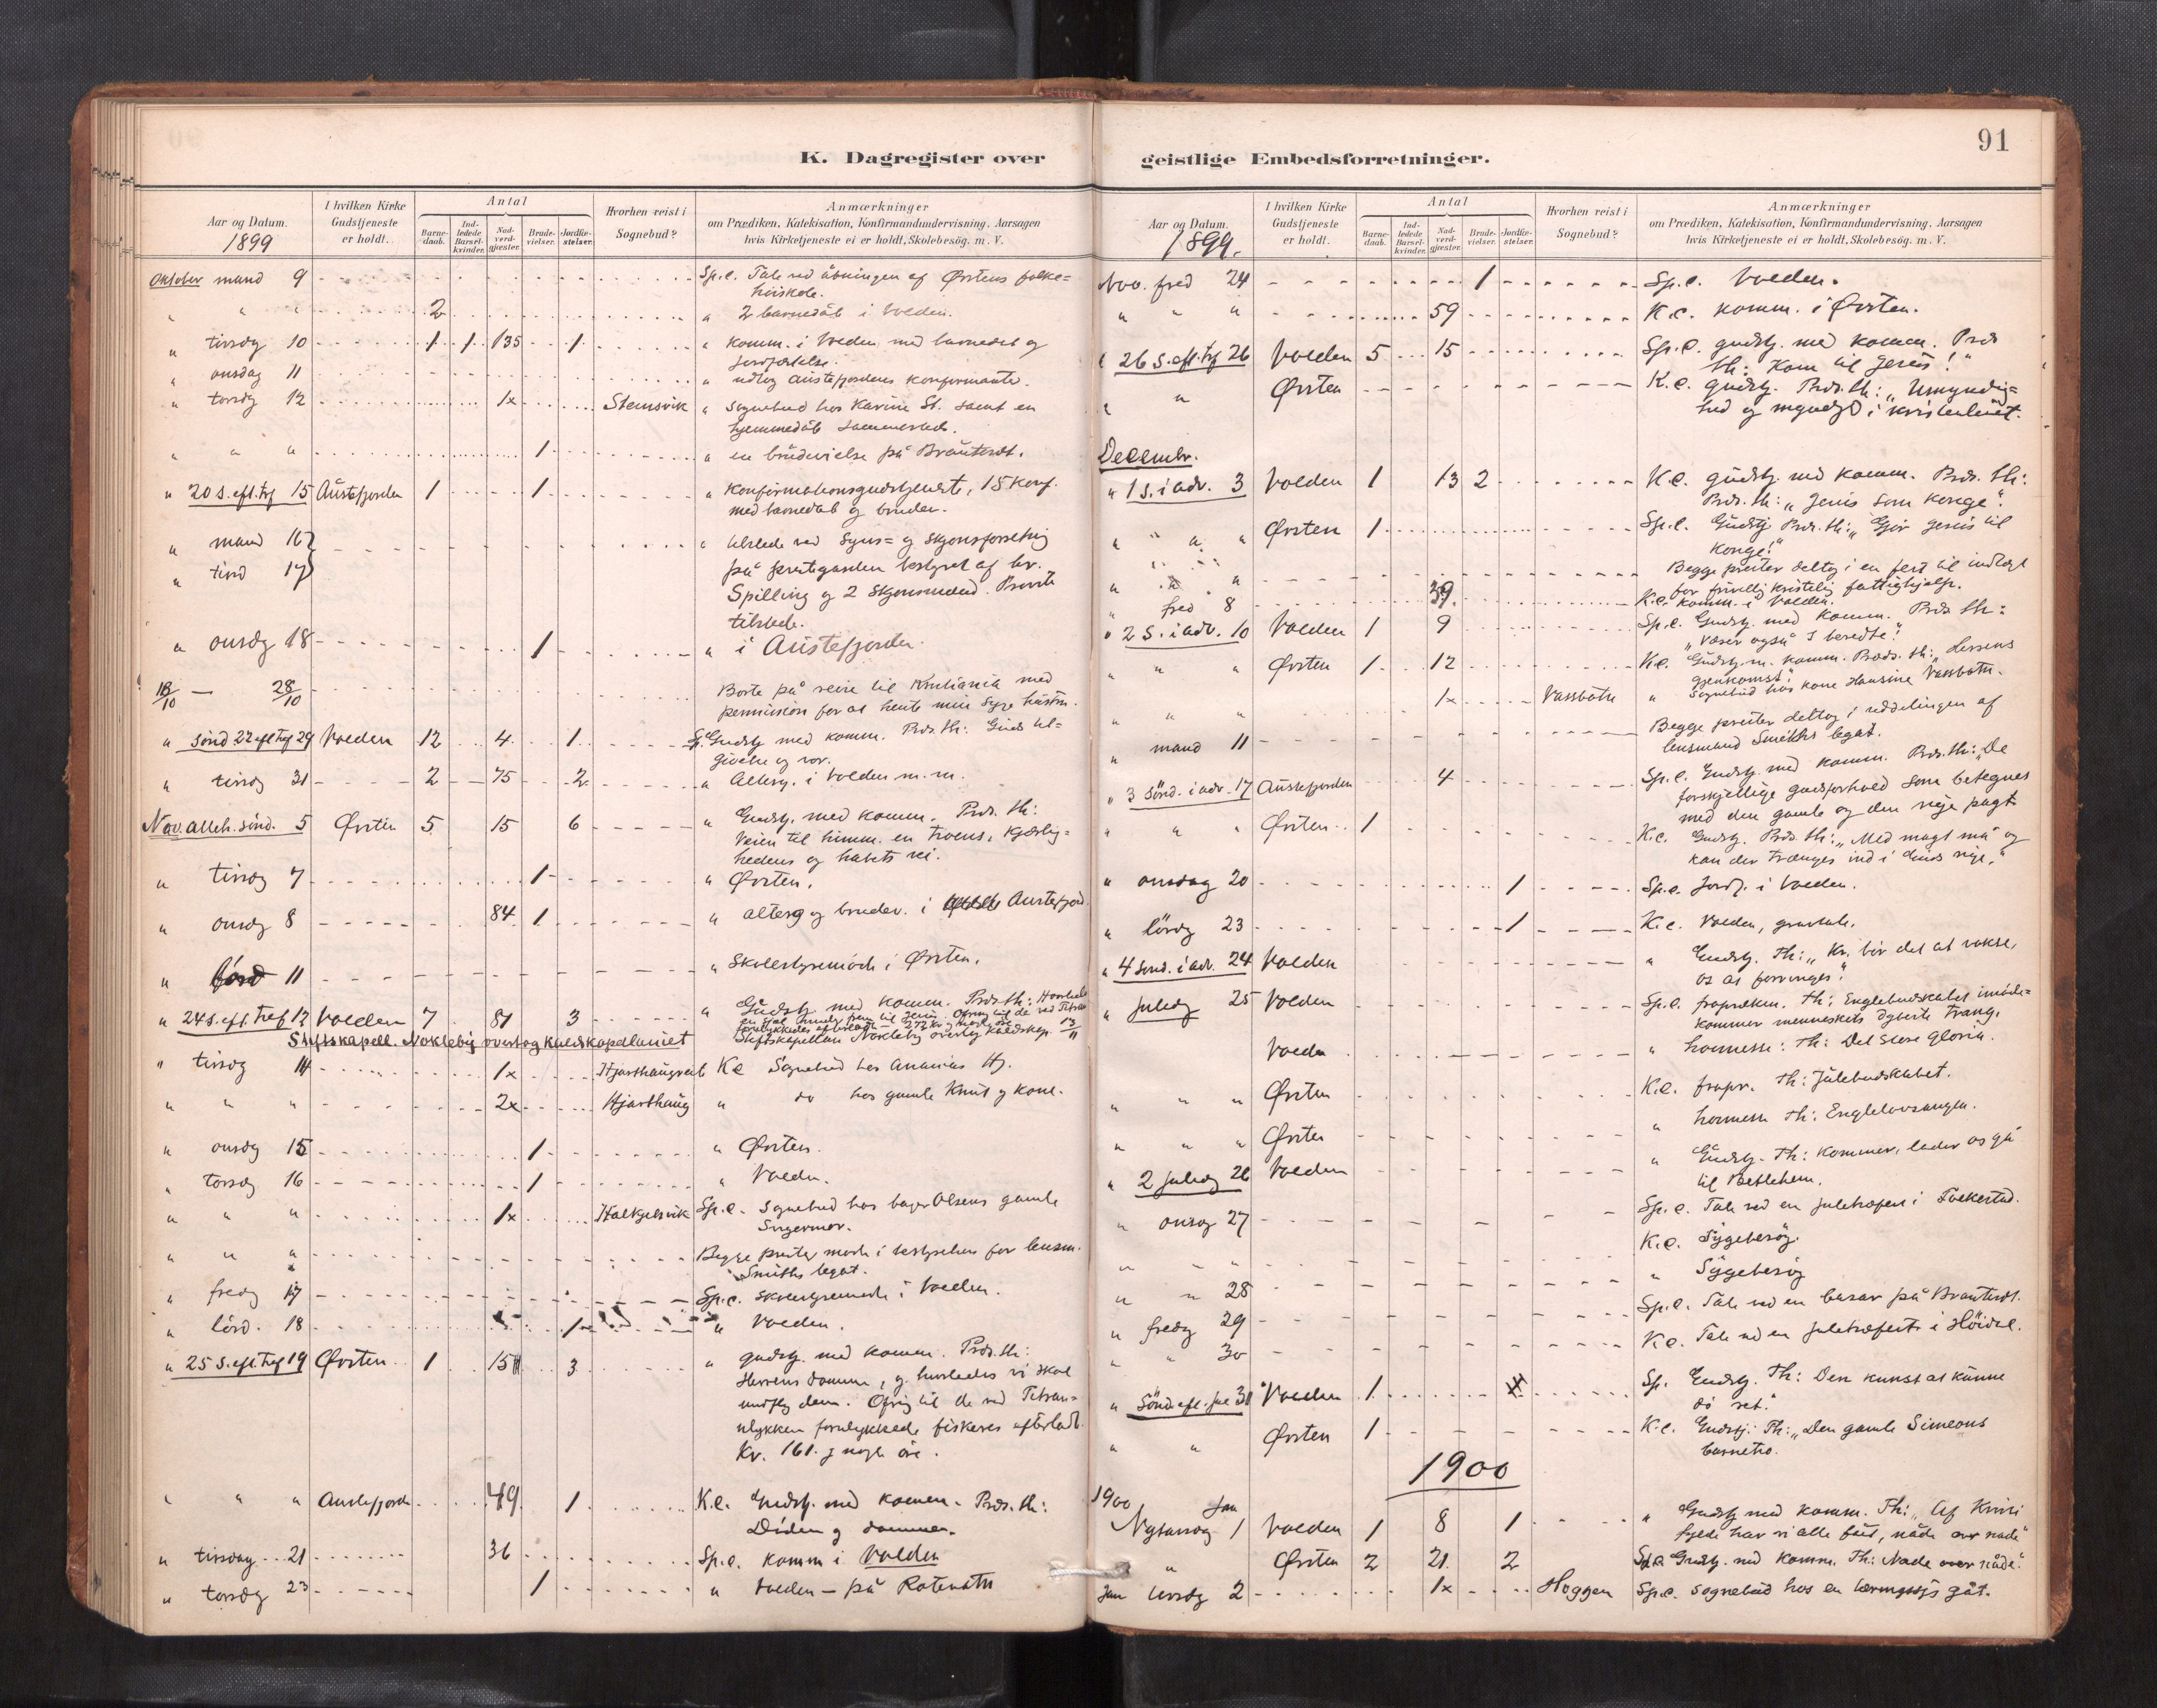 K. Dagregister over
Aar og Datum.
1899
I hvilken Kirke Gudstjeneste er holdt.
Antal
Barnedaab.
Indledede Barselkvinder.
Nadverdgjæster.
Brudevielser.
Jordfæstelser.
Hvorhen reist i Sognebud?
Anmærkninger
om Prædiken, Katekisation, Konfirmandundervisning, Aarsagen
hvis Kirketjeneste ei er holdt, Skolebesög. m. V.
Oktober mand 9 Sp.c. Tale ved åbningen af Ørstens folke=
höiskole.
" " " 2 " 2 barnedåb i Volden.
" tirsdg 10 1 1 135 1 " Komm. i Volden med barnedåb og
jordfæstelse.
" onsdag 11 " udtog Austefjordens konfirmanter.
" torsdg 12 1x Steinsvik " Sognebud hos Karine St. samt en
hjemmedåb sammesteds.
" " " 1 " en brudevielse på
" 20 s. eft. tref 15 Austefjorden 1 1 " Konfirmationsgudstjeneste, 15 Konf.
med barnedåb og brudev.
" mand 16 " tilstede ved Syns= og Skjønsforretng
" tirsd 17 på prestegarden bestyret af hr.
Spilling og 2 Skjønsmænd. Provst
tilstede.
" onsdg 18 1 " i Austefjorden.
18/10 — 28/10 Borte på reise til Kristiania med
permission for at hente min syge hustru.
" sönd 22 eft tref 29 Volden 12 4 1 Sp.c. Gudstj med komm. Præd. th: Guds til=
givelse og vor.
" tirsdg 31 2 75 2 " Alterg. i Volden m. m.
Nov. alleh. sönd. 5 Ørsten 5 15 6 " Gudstj. med komm. Præd. th:
Veien til himm. en troens, kjærlig=
hedens og håbets vei.
" tirsdg 7 1 " Ørsten.
" onsdg 8 84 1 " alterg og brudev. i Austefjord.
" lörd 11 " Skolestyremöde i Ørsten.
" 24 s. eft. tref 12 Volden 7 81 3 " Gudstj med komm. Præd. th:
Stiftskapell. Nokleby overtog Kaldskapellaniet
" tirsdg 14 1x K.c Sognebud hos Ananias Hj.
" " " 2x Hjarthaug " do hos gamle Knut og kone.
" onsdg 15 1 " Ørsten.
" torsdg 16 1 " Volden.
" " " 1x Halkjelsvik Sp.c. Sognebud hos bager Olsens gamle
Svigermor.
" " " Begge prester möde i bestyrelsen for lensm.
Smiths legat.
" fredg 17 Sp.c. Skolestyremöde i Volden.
" lörd. 18 1 " Volden.
" 25 s. eft. tref 19 Ørsten 1 15 3 " gudstj. med komm. Præd. th:
Herrens domme, og hvorledes vi skal
undfly dem. Ofring til de ved Titran=
ulykken forulykkede fiskeres efterladte
Kr. 161. og nogle öre.
" " " Austefjorden 49 1 K.c. Gudstj. med komm. Præd. th:
Döden og dommen.
" tirsdag 21 36 Sp.c. komm i Volden
" torsdg 23 1 " Volden — på Rotevatn
91
geistlige Embedsforretninger.
Aar og Datum.
1899.
I hvilken Kirke Gudstjeneste er holdt.
Antal
Barnedaab.
Indledede Barselkvinder.
Nadverdgjæster.
Brudevielser.
Jordfæstelser.
Hvorhen reist i Sognebud?
Anmærkninger
om Prædiken, Katekisation, Konfirmandundervisning, Aarsagen
hvis Kirketjeneste ei er holdt, Skolebesög. m. V.
Nov. fred 24 1 Sp.c. Volden.
" " " 59 K.c. komm. i Ørsten.
" 26 s. eft. tref 26 Volden 5 15 Sp.c. gudstj. med komm. Præd
th: Kom til Jesus!"
" " Ørsten K.c. gudstj. Præd. th: „Umyndig=
hed og myndigh i kristenlivet.
Decembr.
" 1 s. i adv. 3 Volden 1 13 2 K.c. gudstj. med komm. Præd. th:
Præd. th: „Jesus som konge".
" " " Ørsten 1 Sp.c. Gudstj. Præd. th: „Gjör Jesus til
konge!"
" " " Begge prester deltog i en fest til indtægt
for frivillig kristelig fattighjelp.
" fred 8 39. K.c. komm. i Volden.
" 2 s. i adv. 10 Volden 1 9 Sp.c. Gudstj. med komm. Præd. th:
„Værer også I beredte!"
" " " Ørsten 1 12 K.c. Gudstj. m. komm. Præd. th: „Herrens
gjenkomst".
" " " 1x Vassbotn " Sognebud hos kone Hansine Vassbotn.
" mand 11 Begge prester deltog i uddelingen af
lensmand Smiths legat.
" 3 sönd. i adv. 17 Austefjorden 4 Sp.c. Gudstj. med komm. Præd. th: „De
forskjellige gudsforhold som betegnes
med den gamle og den nye pagt.
" " " Ørsten 1 K.c. Gudstj. Præd. th: „Med magt må og
kan der trænges ind i Guds rige."
" onsdag 20 1 Sp.c. Jordf. i Volden.
" lördg 23 1 K.c. Volden, gravtale.
" 4 sönd. i adv. 24 Volden " Gudstj. Th: „Kr. bör det at vokse,
os at forringes".
" Juledg 25 Volden Sp.c. froprædiken. Th: Englebudskabet imöde=
kommer menneskets dybeste trang.
Volden " hoimesse: Th: Det store Gloria.
" " " Ørsten K.c. fropr. Th: Julebudskabet.
" " " Ørsten " hoimesse Th: Englelovsangen.
" 2 juledg 26 Volden " Gudstj. Th: Kommer, lader os gå
til Bethlehem.
" onsdg 27 Sp.c. Tale ved en juletræfest i Folkestad.
" " " K.c. Sygebesög.
" " 28 " Sygebesög
" fredg 29 Sp.c. Tale ved en basar på
" " 30 K.c. Tale ved en juletræfest i Höidal.
" Sönd. eft. jul 31 Volden 1 Sp. Gudstj. Th: Den kunst at kunne
dö ret."
" " Ørsten 1 K.c. Gudstj. Th: „Den gamle Simeons
barnetro.
1900
1900 Jan
Nytårsdg 1 Volden 1 8 1 " Gudstj med komm. Th: „Af Kristi
fylde har vi alle fået, nåde over nåde"
" Ørsten 2 21. 2 Sp.c. Gudstj. med komm. Th: Nåde over nåde".
Jan tirsdg 2 1x Hoggen Sp.c. sognebud hos en gåt.